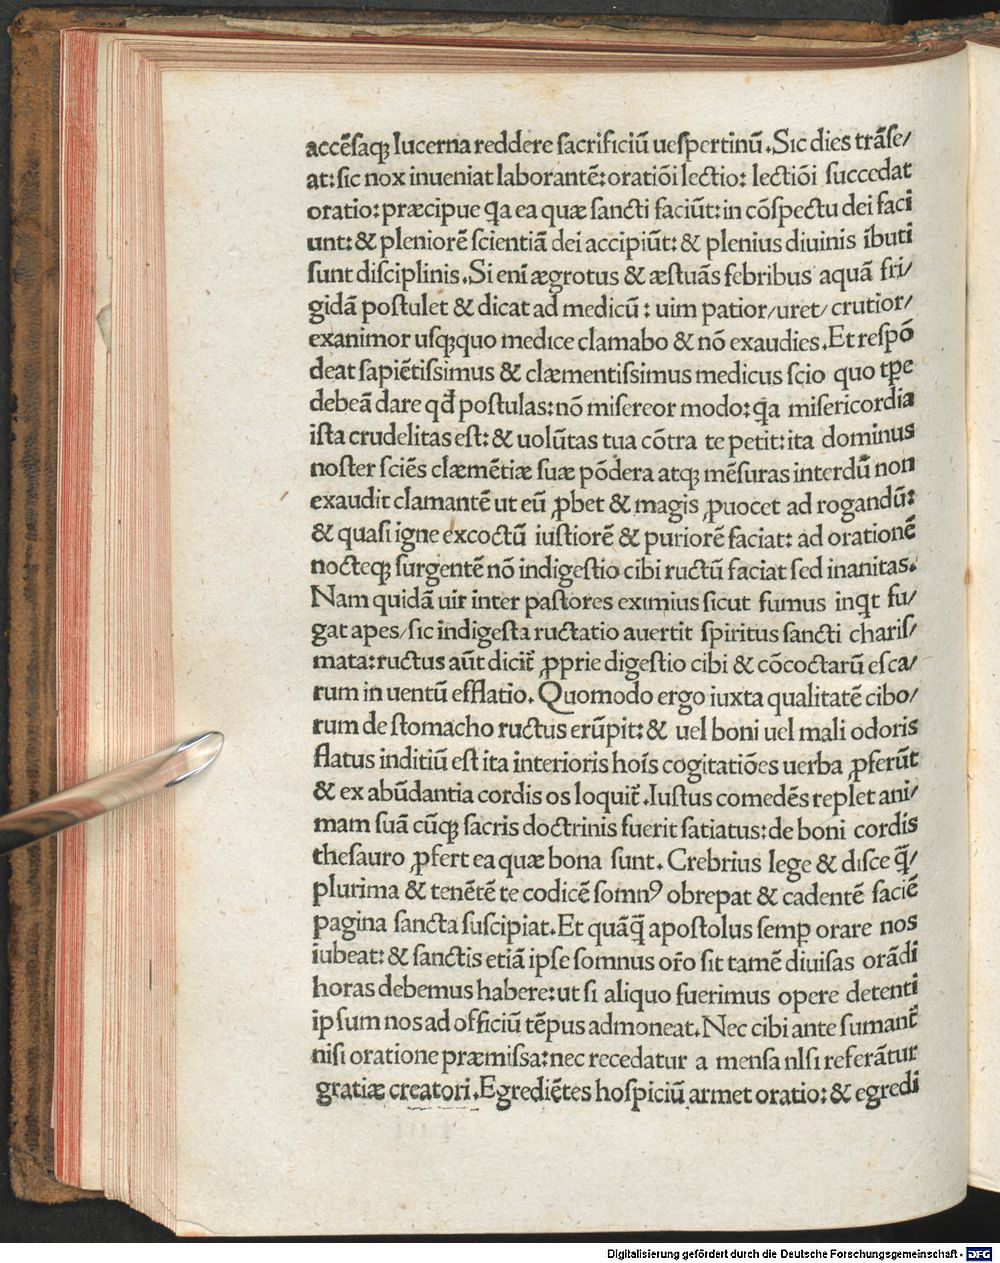 accēſaqꝫ lucerna reddere ſacrificiū ueſpertinū. Sic dies trāſe/
at: ſic nox inueniat laborantē: oratiōi lectio: lectiōi ſuccedat
oratio: præcipue q̄a ea quæ ſancti faciūt: in cōſpectu dei faci
unt: & pleniorē ſcientiā dei accipiūt: & plenius diuinis ībuti
ſunt diſciplinis. Si enī ægrotus & æſtuās febribus aquā fri/
gidā poſtulet & dicat ad medicū: uim patior/uret/crutior/
exanimor uſqꝫquo medice clamabo & nō exaudies. Et reſpō
deat ſapiētiſſimus & clæmentiſſimus medicus ſcio quo tꝑe
debeā dare qd̄ poſtulas: nō miſereor modo: q̄a miſericordia
iſta crudelitas eſt: & uolūtas tua cōtra te petit: ita dominus
noſter ſciēs clæmētiæ ſuæ pōdera atqꝫ mēſuras interdū non
exaudit clamantē ut eū ꝓbet & magis ꝓuocet ad rogandū:
& quaſi igne excoctū iuſtiorē & puriorē faciat: ad orationē
nocteqꝫ ſurgentē nō indigeſtio cibi ructū faciat ſed inanitas.
Nam quidā uir inter paſtores eximius ſicut fumus inq̄t fu/
gat apes/ſic indigeſta ructatio auertit ſpiritus ſancti chariſ/
mata: ructus aūt dicit̄ ꝓprie digeſtio cibi & cōcoctarū eſca/
rum in uentū efflatio. Quomodo ergo iuxta qualitatē cibo/
rum de ſtomacho ructus erūpit: & uel boni uel mali odoris
flatus inditiū eſt ita interioris hoīs cogitatiōes uerba ꝓferūt
& ex abūdantia cordis os loquit̄. Iuſtus comedēs replet ani/
mam ſuā cūqꝫ ſacris doctrinis fuerit ſatiatus: de boni cordis
theſauro ꝓfert ea quæ bona ſunt. Crebrius lege & diſce q̄/
plurima & tenētē te codicē ſomnꝰ obrepat & cadentē faciē
pagina ſancta ſuſcipiat. Et quāq̄ apoſtolus ſemꝑ orare nos
iubeat: & ſanctis etiā ipſe ſomnus or̄o ſit tamē diuiſas orādi
horas debemus habere: ut ſi aliquo fuerimus opere detenti
ipſum nos ad officiū tēpus admoneat. Nec cibi ante ſumant̄
niſi oratione præmiſſa: nec recedatur a menſa nIſi referātur
gratiæ creatori. Egrediētes hoſpiciū armet oratio: & egredi
Digitalisierung gefördert durch die Deutsche Forschungsgemeinschaft - DFG